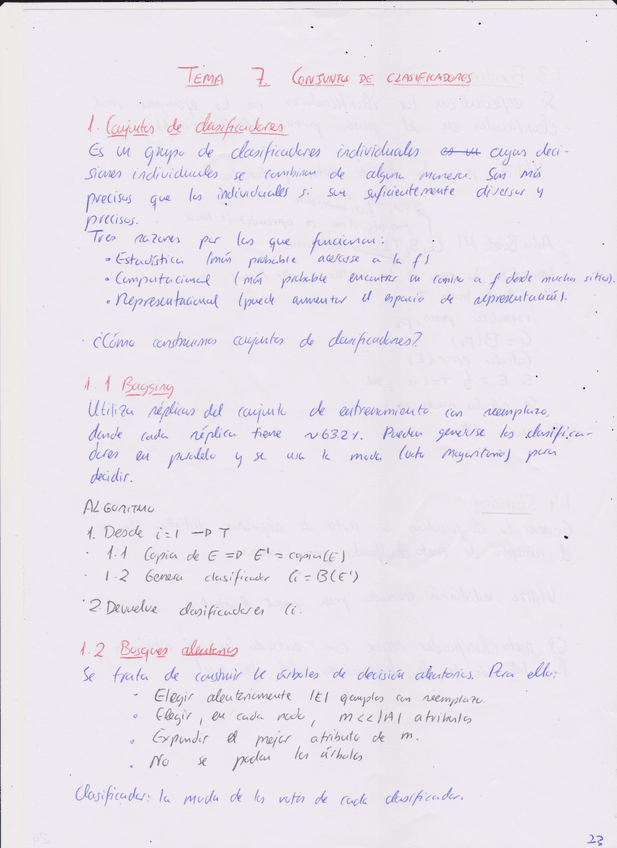 TEMA 7 CONJUNTOS DE CLASIFICADORES
1. Conjuntos de clasificadores
Es un grupo de clasificadores individuales cuyas deci-
siones individuales se combinan de alguna manera. Son más
precisos que los individuales si son suficientemente diversos y
precisos.
Tres razones por las que funcionan:
• Estadística (más probable acercarse a la f)
• Computacional (más probable encontrar un camino a f desde muchos sitios).
• Representacional (puede aumentar el espacio de representación).
¿Cómo construimos conjuntos de clasificadores?
1.1 Bagging
Utiliza réplicas del conjunto de entrenamiento con reemplazo,
donde cada réplica tiene ~63.2%. Pueden generarse los clasifica-
dores en paralelo y se usa la moda (voto mayoritario) para
decidir.
ALGORITMO
1. Desde i=1 → T
· 1.1 Copia de E => E' = copia(E)
· 1.2 Genera clasificador Ci = B(E')
· 2. Devuelve clasificadores Ci.
1.2 Bosques aleatorios
Se trata de construir k árboles de decisión aleatorios. Para ello:
• Elegir aleatoriamente |E| ejemplos con reemplazo.
• Elegir, en cada nodo, m<<|A| atributos
• Expandir el mejor atributo de m.
• No se podan los árboles
Clasificador: la moda de los votos de cada clasificador.
23